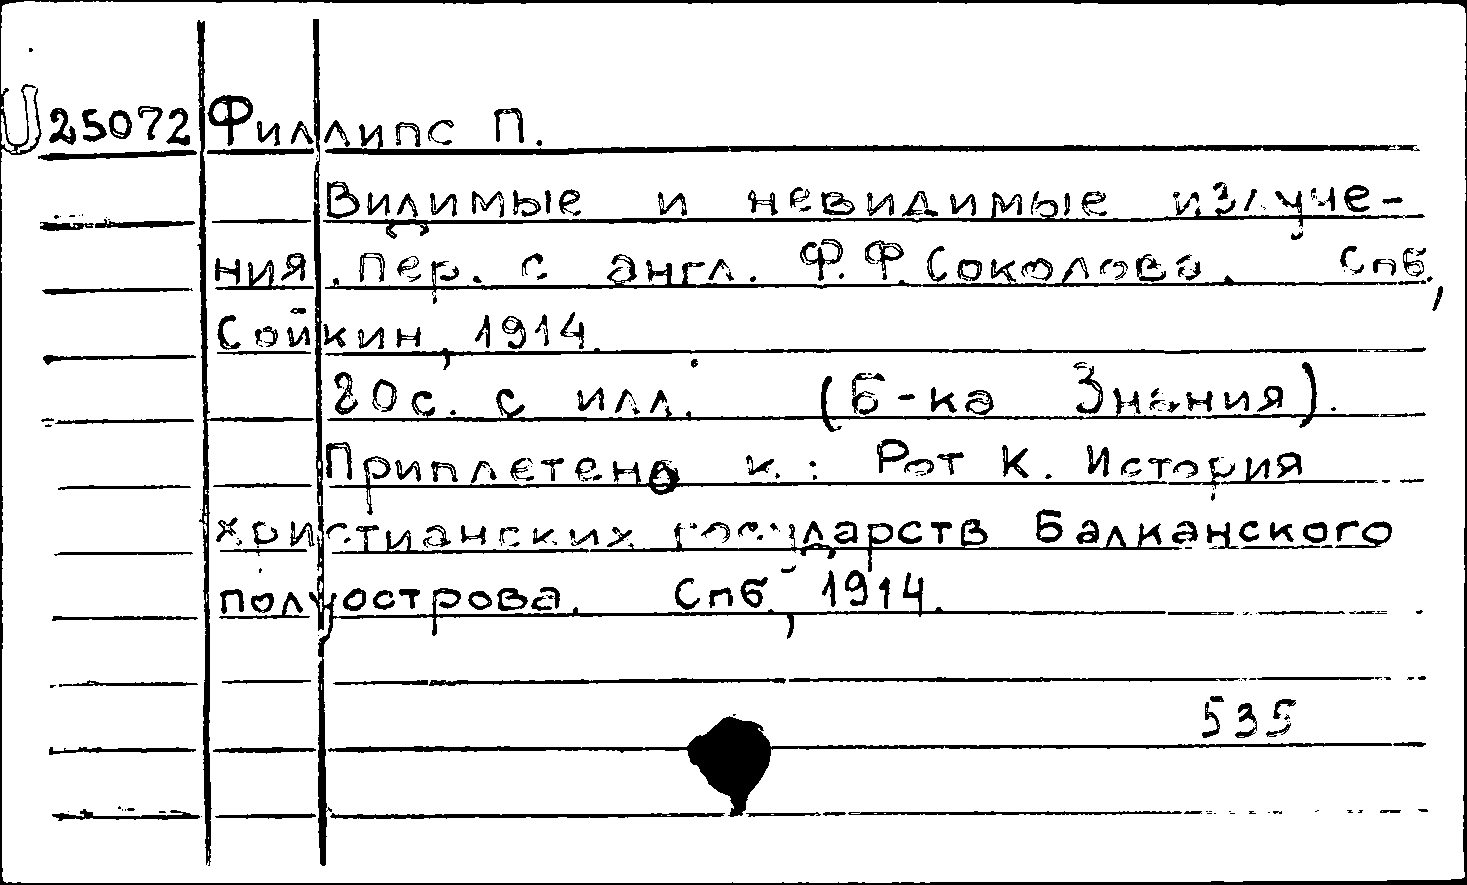 U 25072 Филлипс П.
Видимые и невидимые излуче-
ния. Пер. с англ. Ф.Ф. Соколова. Спб.,
Сойкин, 1914.
80с. с илл. (Б-ка Знания).
Приплетено к.: Рот К. История
христианских государств Балканского
полуострова. Спб., 1914.
535